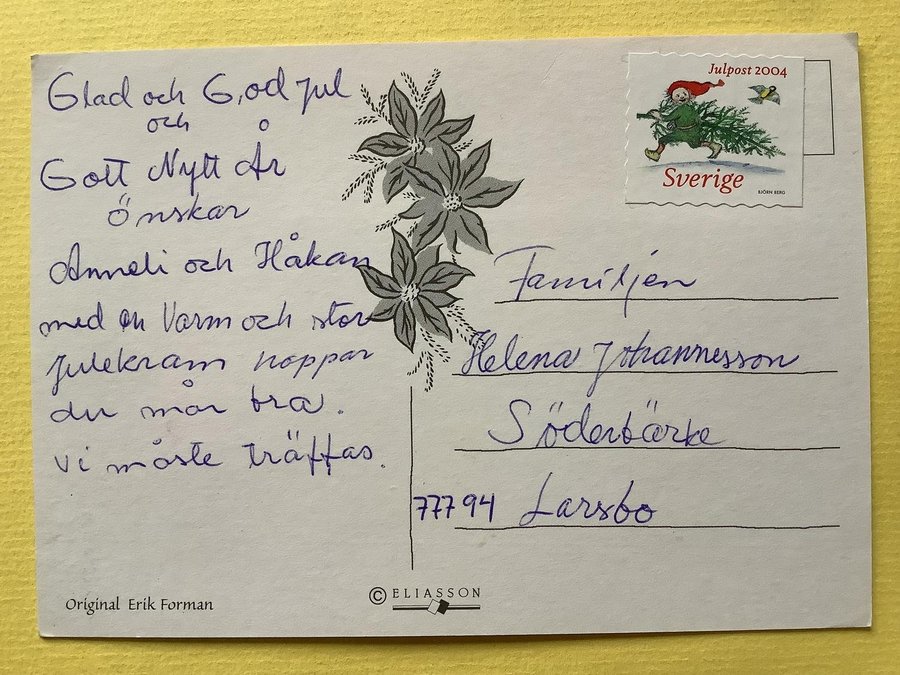 Glad och God Jul
och
Gott Nytt År
önskar
Anneli och Håkan
med en Varm och stor
julekram hoppar
du mår bra.
vi måste träffas.
Julpost 2004
Sverige
BJÖRN BERG
Familjen
Helena Johannesson
Söderbärke
77794 Larsbo
Original Erik Forman
© ELIASSON